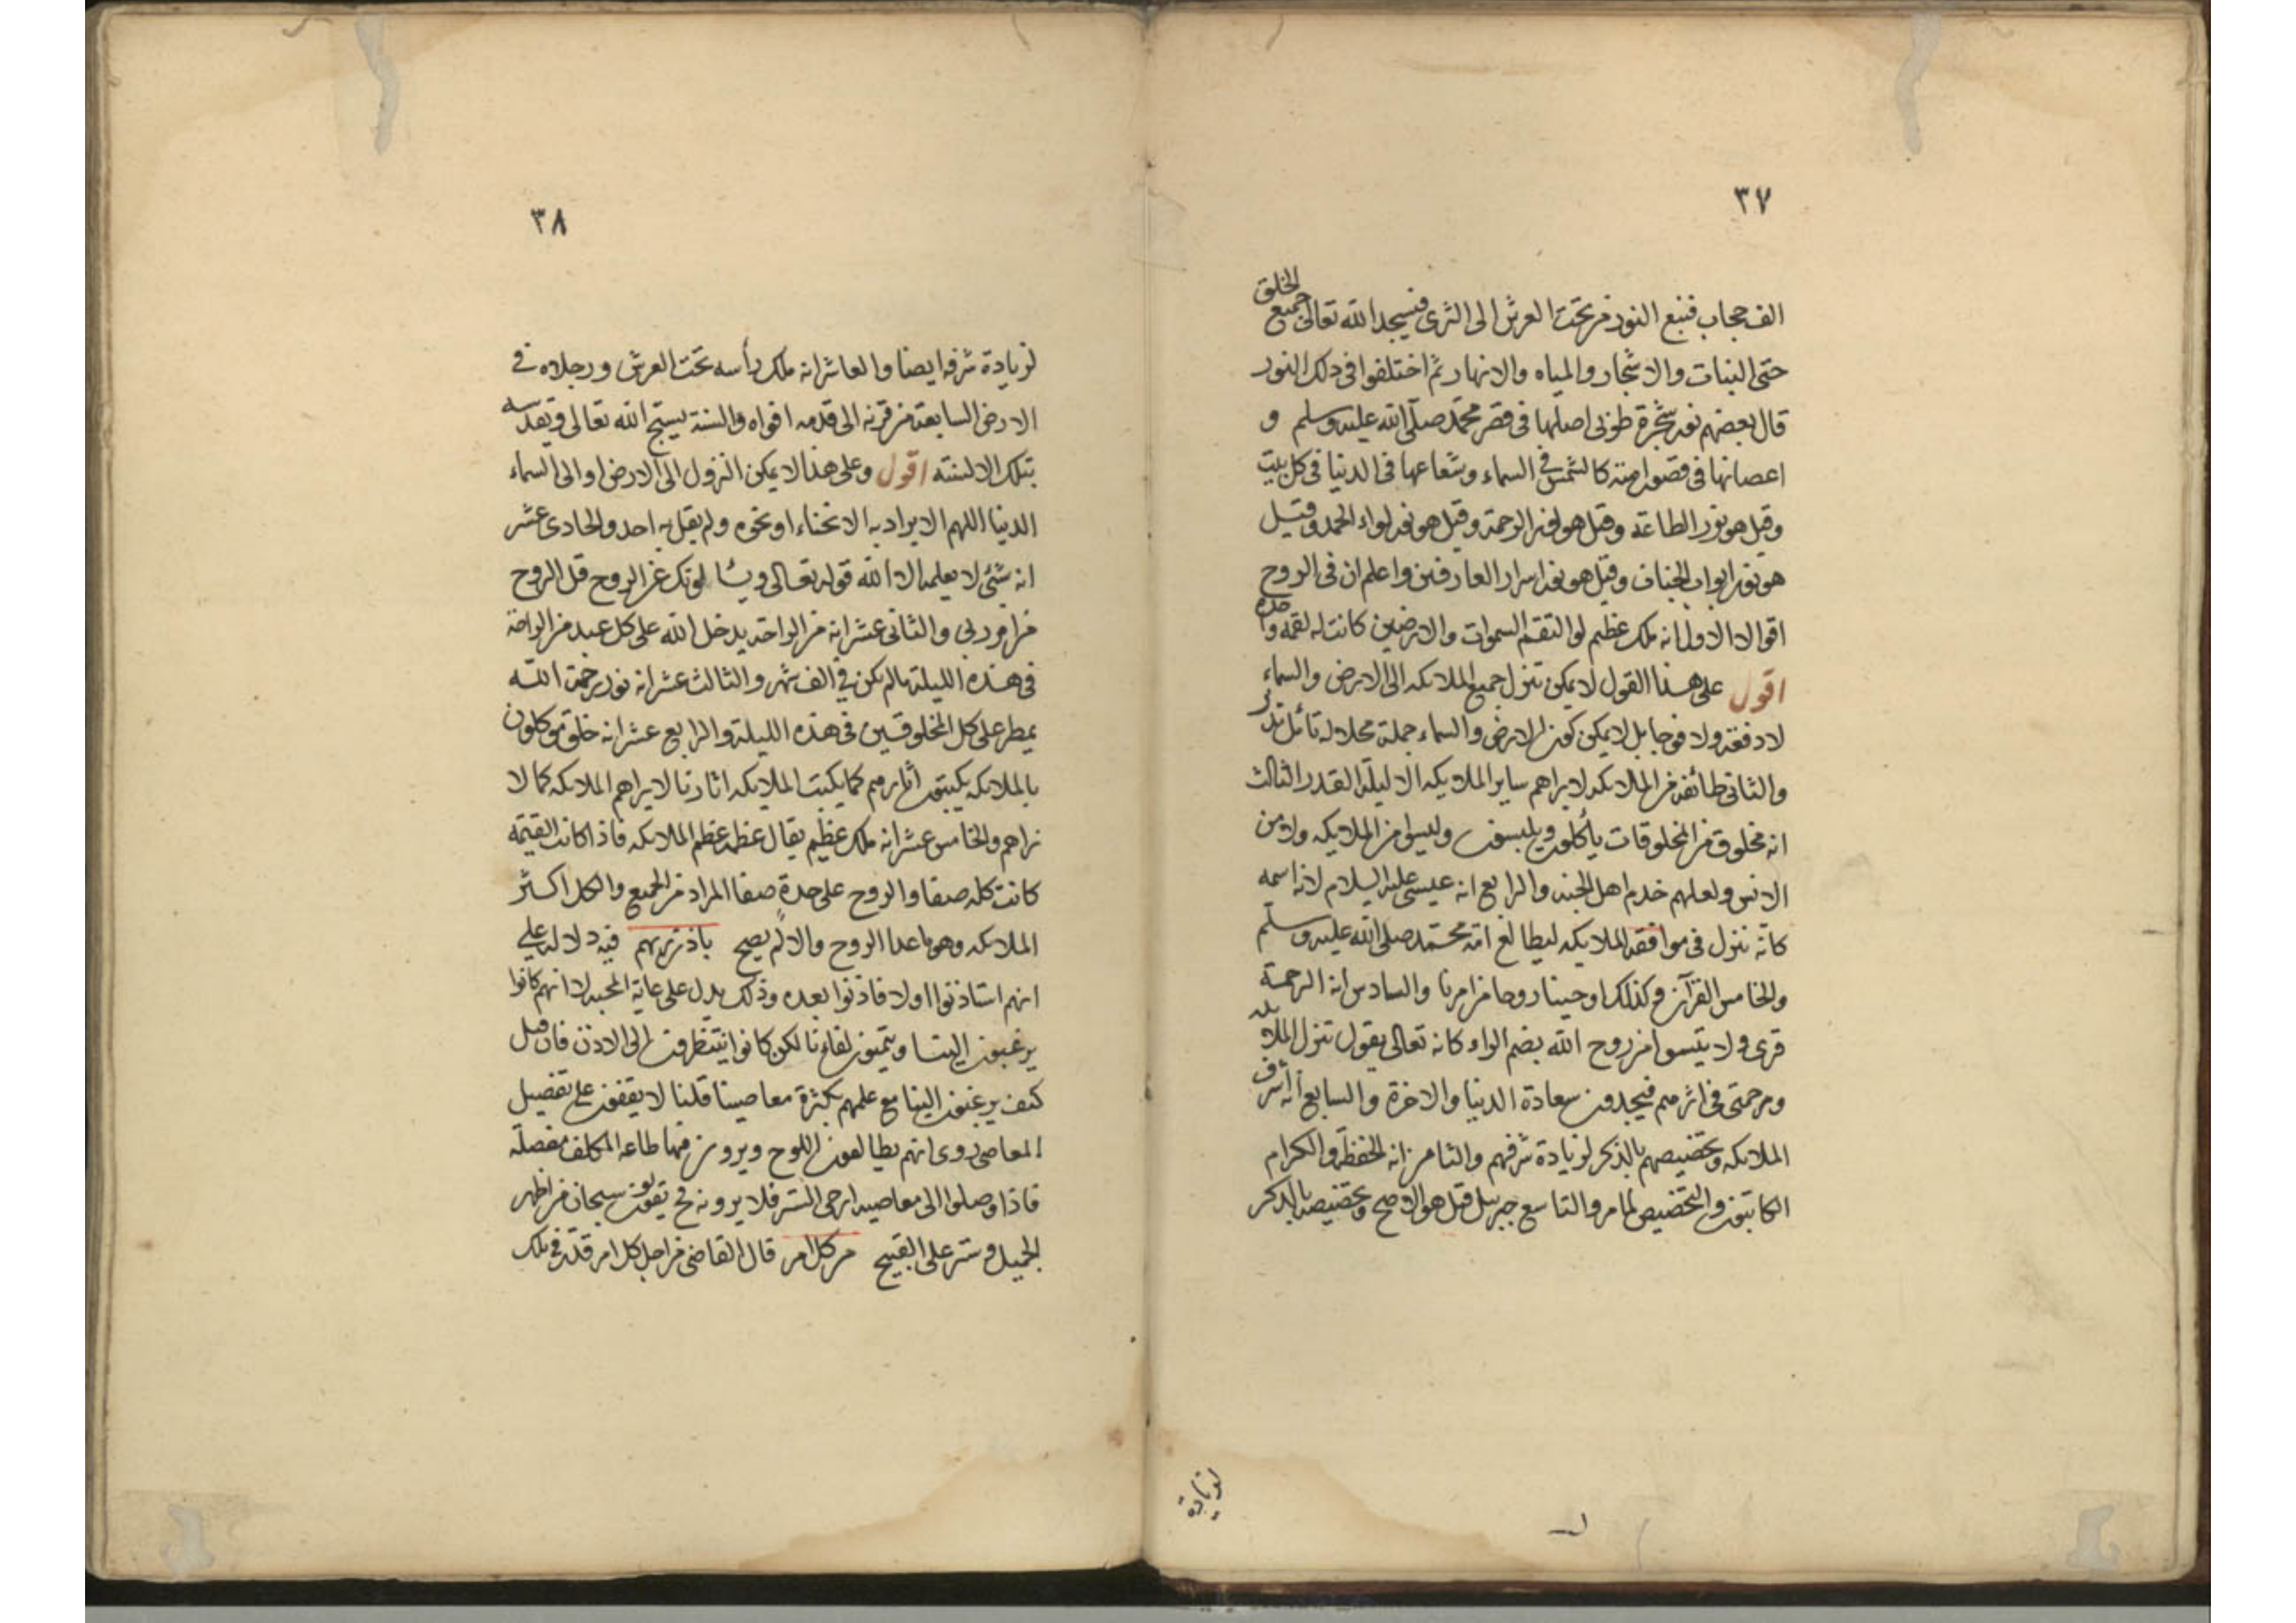 ٣٧
الف حجاب فنبع النور من تحت العرش الى الثرى فيسجد الله تعالى جميع الخلق
حتى النبات والاشجار والمياه والانهار ثم اختلفوا فى ذلك النور
قال بعضهم نور شجرة طوبى اصلها فى قصر محمد صلى الله عليه وسلم و
اعصانها فى قصور امته كالشمس فى السماء وشعاعها فى الدنيا فى كل بيت
وقيل هو نور الطاعة وقيل هو نور الرحمة وقيل هو نور لواء الحمد وقيل
هو نور ابواب الجنان وقيل هو نور اسرار العارفين واعلم ان فى الروح
اقوالا الاول انه ملك عظيم لو التقم السموات والارضين كانت له لقمة واحدة
اقول على هذا القول لا يمكن تنزل جميع الملائكه الى الارض والسماء
لا دفعة ولا فوجا بل لا يمكن كون الارض والسماء جملة محلا له تأمل تدبر
والثانى طائفة من الملائكه لا يراهم ساير الملايكه الا ليلة القدر الثالث
انه مخلوق من المخلوقات يأكلون ويلبسون وليسوا من الملايكه ولا من
الانس ولعلهم خدم اهل الجنه والرابع انه عيسى عليه السلام لانه اسمه
كانه ننزل فى موافقة الملايكه ليطالع امة محمد صلى الله عليه وسلم
والخامس القرآن وكذلك اوحينا روحا من امرنا والسادس انه الرحمة
قرى ولا تيئسوا من روح الله بضم الراء كانه تعالى يقول تنزل الملائكه
ورحمتى فى اثرهم فيجدون سعادة الدنيا والاخرة والسابع انه اشرف
الملائكه وتخصيصهم بالذكر لزيادة شرفهم والثامن انه الحفظة والكرام
الكاتبون والتخصيص لما مر والتاسع جبريل قيل هو الاصح وتخصيصه بالذكر
لزيادة
٣٨
لزيادة شرفه ايضا والعاشر انه ملك رأسه تحت العرش ورجلاه فى
الارض السابعة من قرنه الى قدمه افواه والسنة يسبح الله تعالى ويقدسه
بتلك الالسنته اقول وعلى هذا لا يمكن النزول الى الارض او الى السماء
الدنيا اللهم الا يراد به الانحناء او نحوه ولم يقل به احد والحادى عشر
انه شئ لا يعلمه الا الله قوله تعالى ويسئلونك عن الروح قل الروح
من امر ربى والثانى عشر انه من الراحة يدخل الله على كل عبد من الراحة
فى هذه الليلة ما لم يكن فى الف شهر والثالث عشر انه نور رحمة الله
يمطر على كل المخلوقين فى هذه الليلة والرابع عشر انه خلق موكلون
بالملائكه يكتبون آثارهم كما يكتب الملايكه اثارنا لا يراهم الملائكه كما لا
نراهم والخامس عشر انه ملك عظيم يقال عظمه عظم الملائكه فاذا كانت القيمة
كانت كله صفا والروح على حدة صفا المراد من الجميع والكل اكثر
الملائكه وهو ما عدا الروح والا لم يصح باذن ربهم فيه دلاله على
انهم استاذنوا اولا فاذنوا بعده وذلك يدل على غاية المحبه لا انهم كانوا
يرغبون الينا ويتمنون لقاءنا لكن كانوا ينتظرون الى الاذن فان قيل
كيف يرغبون الينا مع علمهم بكثرة معاصينا قلنا لا يقفون على تفصيل
المعاصى روى انهم يطالعون اللوح ويرون فيها طاعه المكلف مفصلة
فاذا وصلوا الى معاصيه ارخى الستر فلا يرونه فح يقولون سبحان من اظهر
الجميل وستر على القبيح من كل امر قال القاضى من اجل كل امر قدر فى تلك